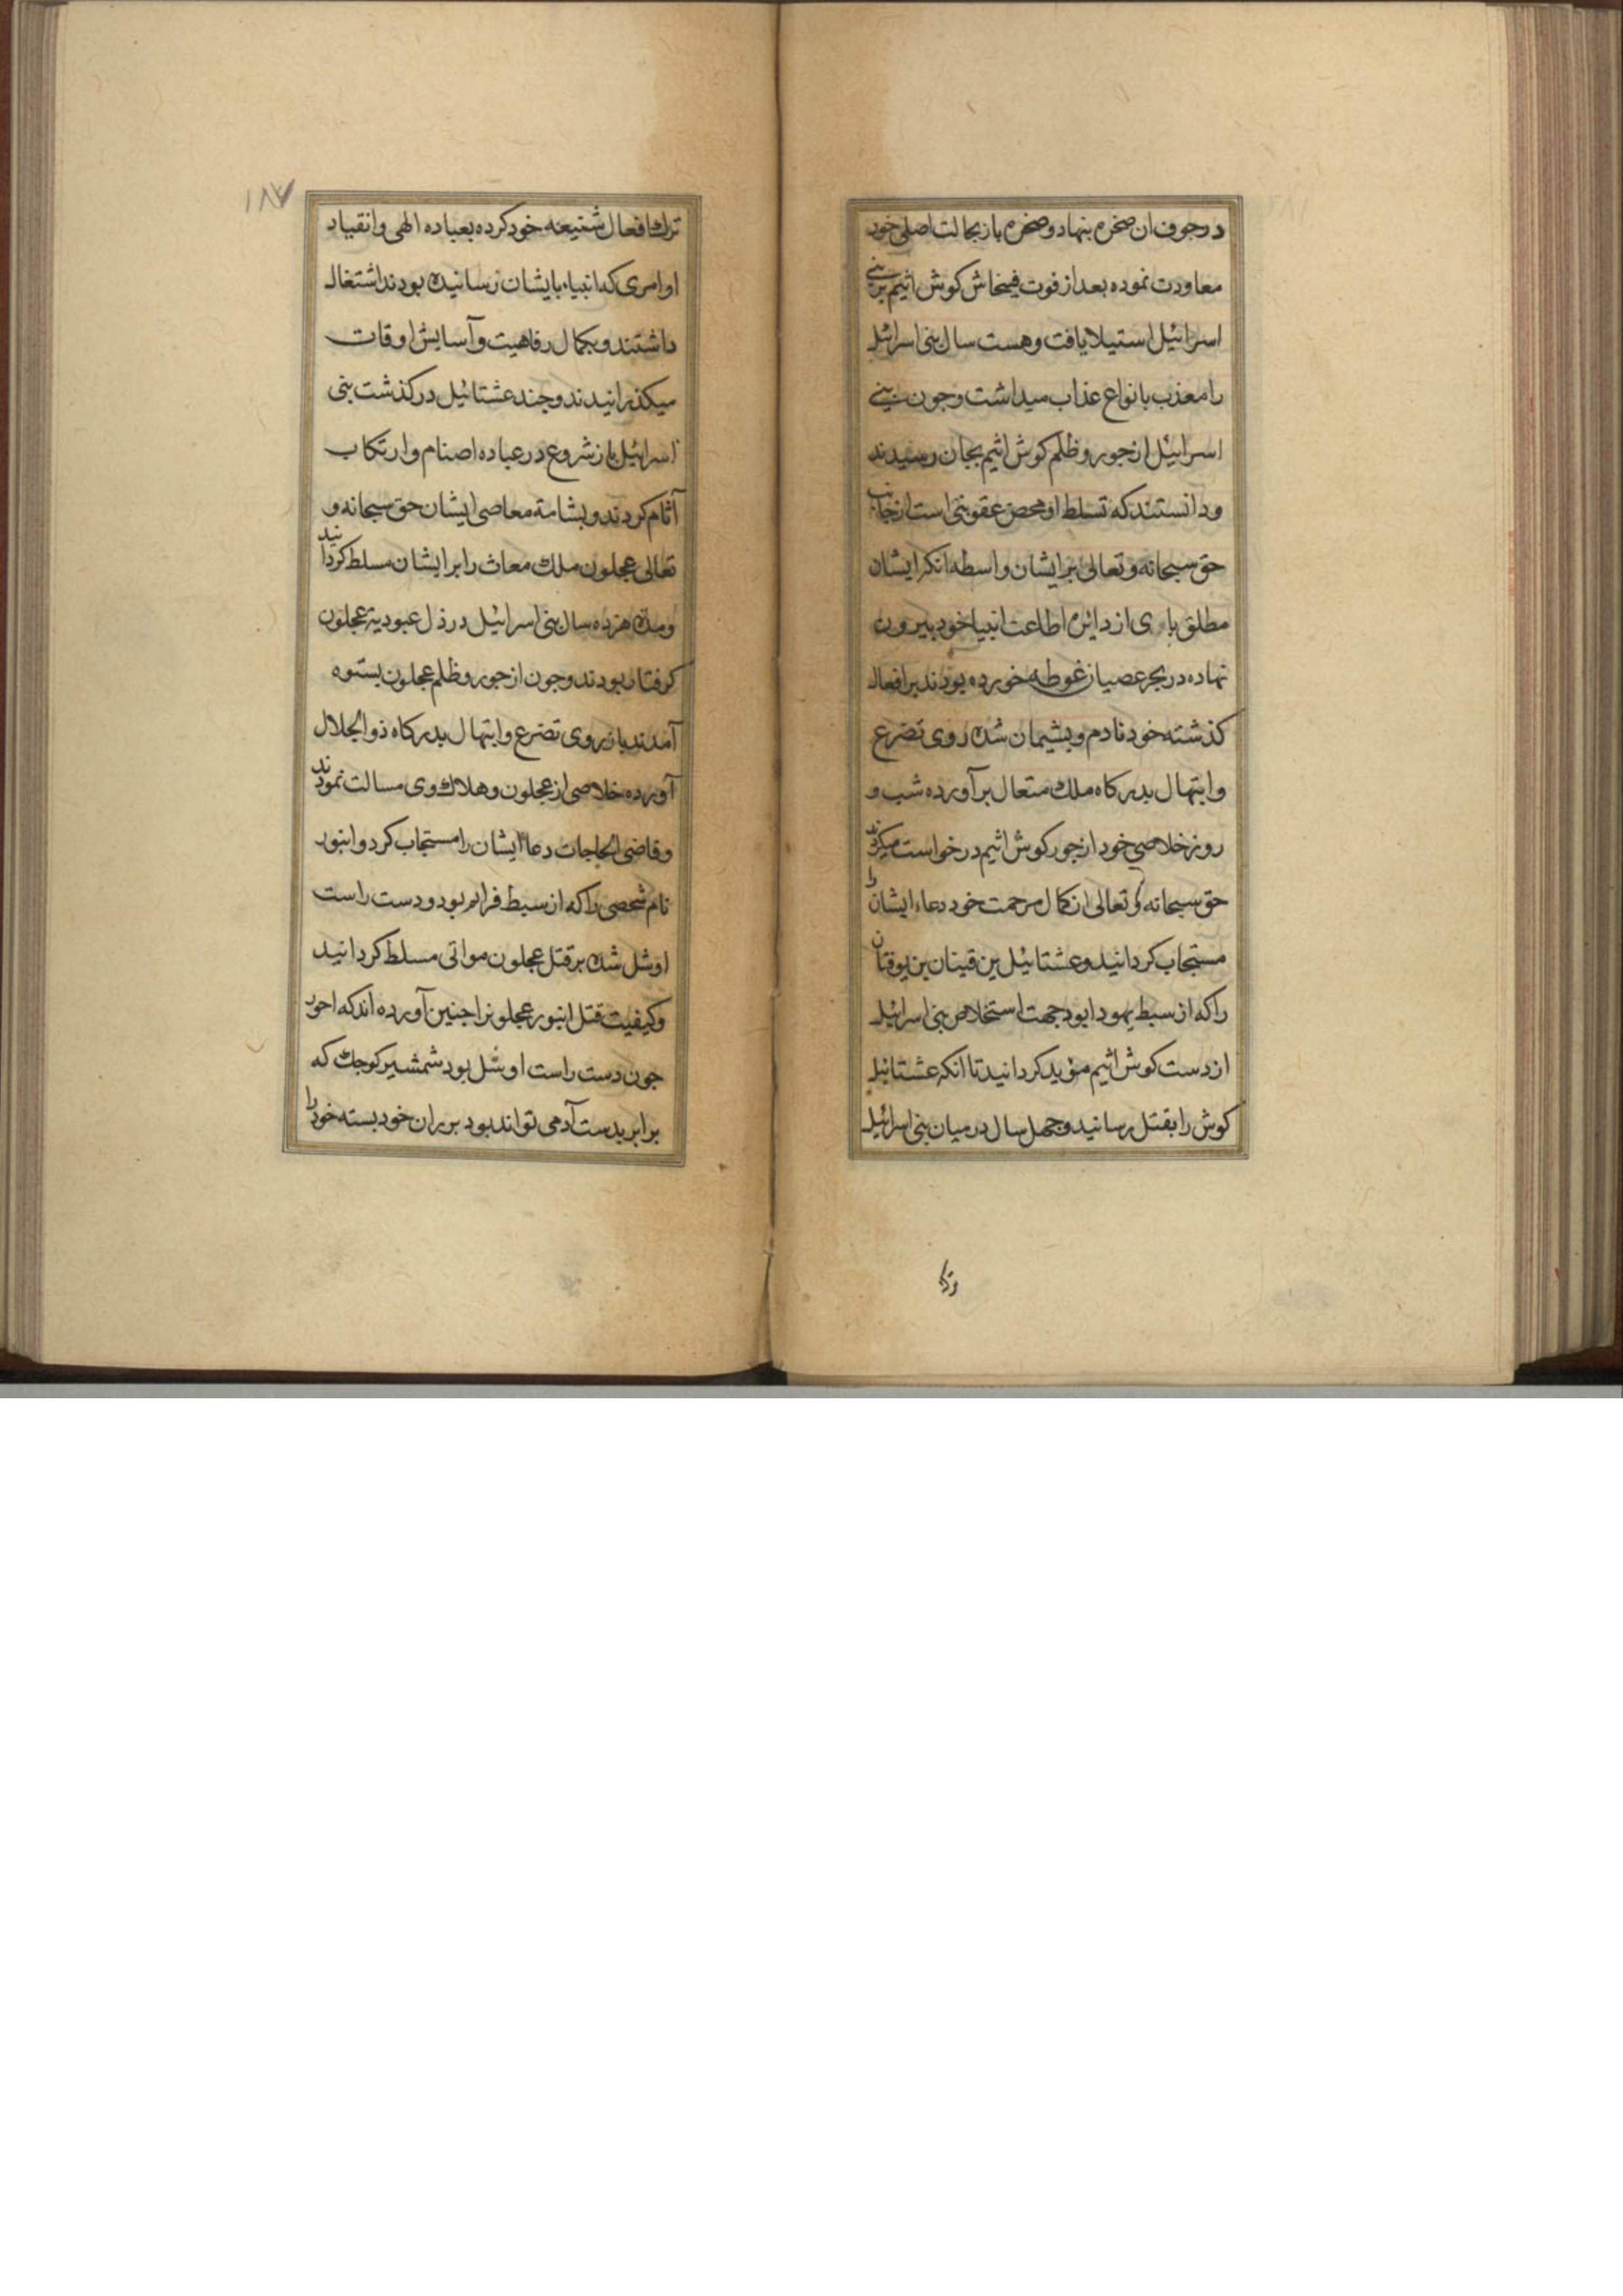 در جوف ان صخره بنهاد و صخره باز بحالت اصلی خود
معاودت نموده بعد از فوت فینحاش کوش اثیم بر بنی
اسرائیل استیلا یافت و هست سال بنی اسرائیل
را معذب بانواع عذاب میداشت و جون بنی
اسرائیل از جور و ظلم کوش اثیم بجان رسیدند
و دانستند که تسلط او محض عقوبتی است از جانب
حق سبحانه و تعالی بر ایشان واسطه انکه ایشان
مطلق از دائره اطاعت انبیا خود بیرون
نهاده در بحر عصیان غوطه خورده بودند بر افعال
کذشته خود نادم و بشیمان شده روی تضرع
و ابتهال بدرکاه ملک متعال برآورده شب و
روز خلاصی خود از جور کوش اثیم درخواست میکردند
حق سبحانه و تعالی از کمال مرحمت خود دعاء ایشان را
مستجاب کردانید و عشتائیل بن قینان بن یوقنان
را که از سبط یهودا بود جهت استخلاص بنی اسرائیل
از دست کوش اثیم مؤید کردانید تا انکه عشتائیل
کوش را بقتل رسانید و جهل سال در میان بنی اسرائیل
ترک
۱۸۷
ترک افعال شنیعه خود کرده بعباده الهی و انقیاد
اوامری که انبیاء بایشان رسانیده بودند اشتغال
داشتند و بکمال رفاهیت و آسایش اوقات
میکذرانیدند و جند عشتائیل درکذشت بنی
اسرائیل باز شروع در عباده اصنام و ارتکاب
آثام کردند و بشامة معاصی ایشان حق سبحانه و
تعالی عجلون ملک معاث را بر ایشان مسلط کردانید
و مدة هزده سال بنی اسرائیل در ذل عبودیة عجلون
کرفتار بودند و جون از جور و ظلم عجلون بستوه
آمدند باز روی تضرع و ابتهال بدرکاه ذو الجلال
آورده خلاصی از عجلون و هلاک وی مسالت نمودند
و قاضی الحاجات دعاء ایشان را مستجاب کرد و انبور
نام شخصی را که از سبط فرایم بود و دست راست
او شل شده بر قتل عجلون مواتی مسلط کردانید
و کیفیت قتل انبور عجلونرا جنین آورده اند که احور
جون دست راست او شل بود شمشیر کوجک که
برابر بدست آدمی تواند بود بر ران خود بسته خود را